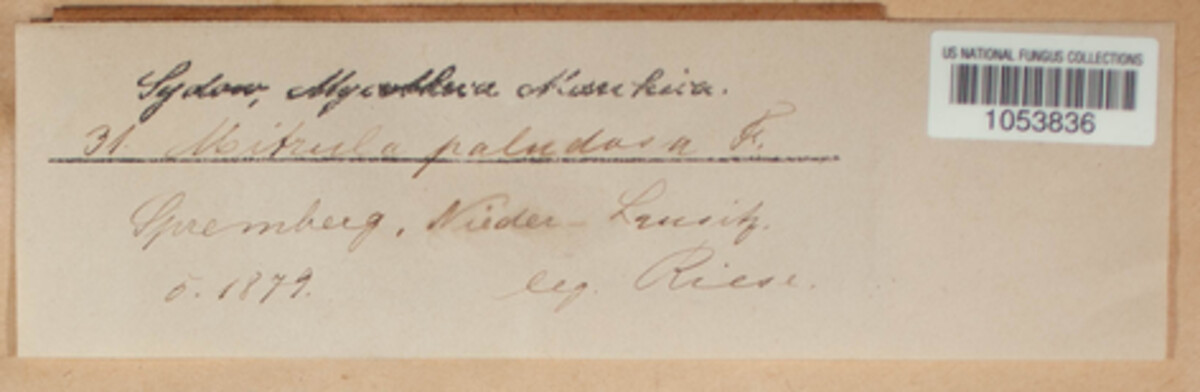 Sydow, Mycotheca Marchica.
31. Mitrula paludosa Fr.
Spremberg, Nieder-Lausitz.
5. 1879. leg. Riese.
US NATIONAL FUNGUS COLLECTIONS
1053836